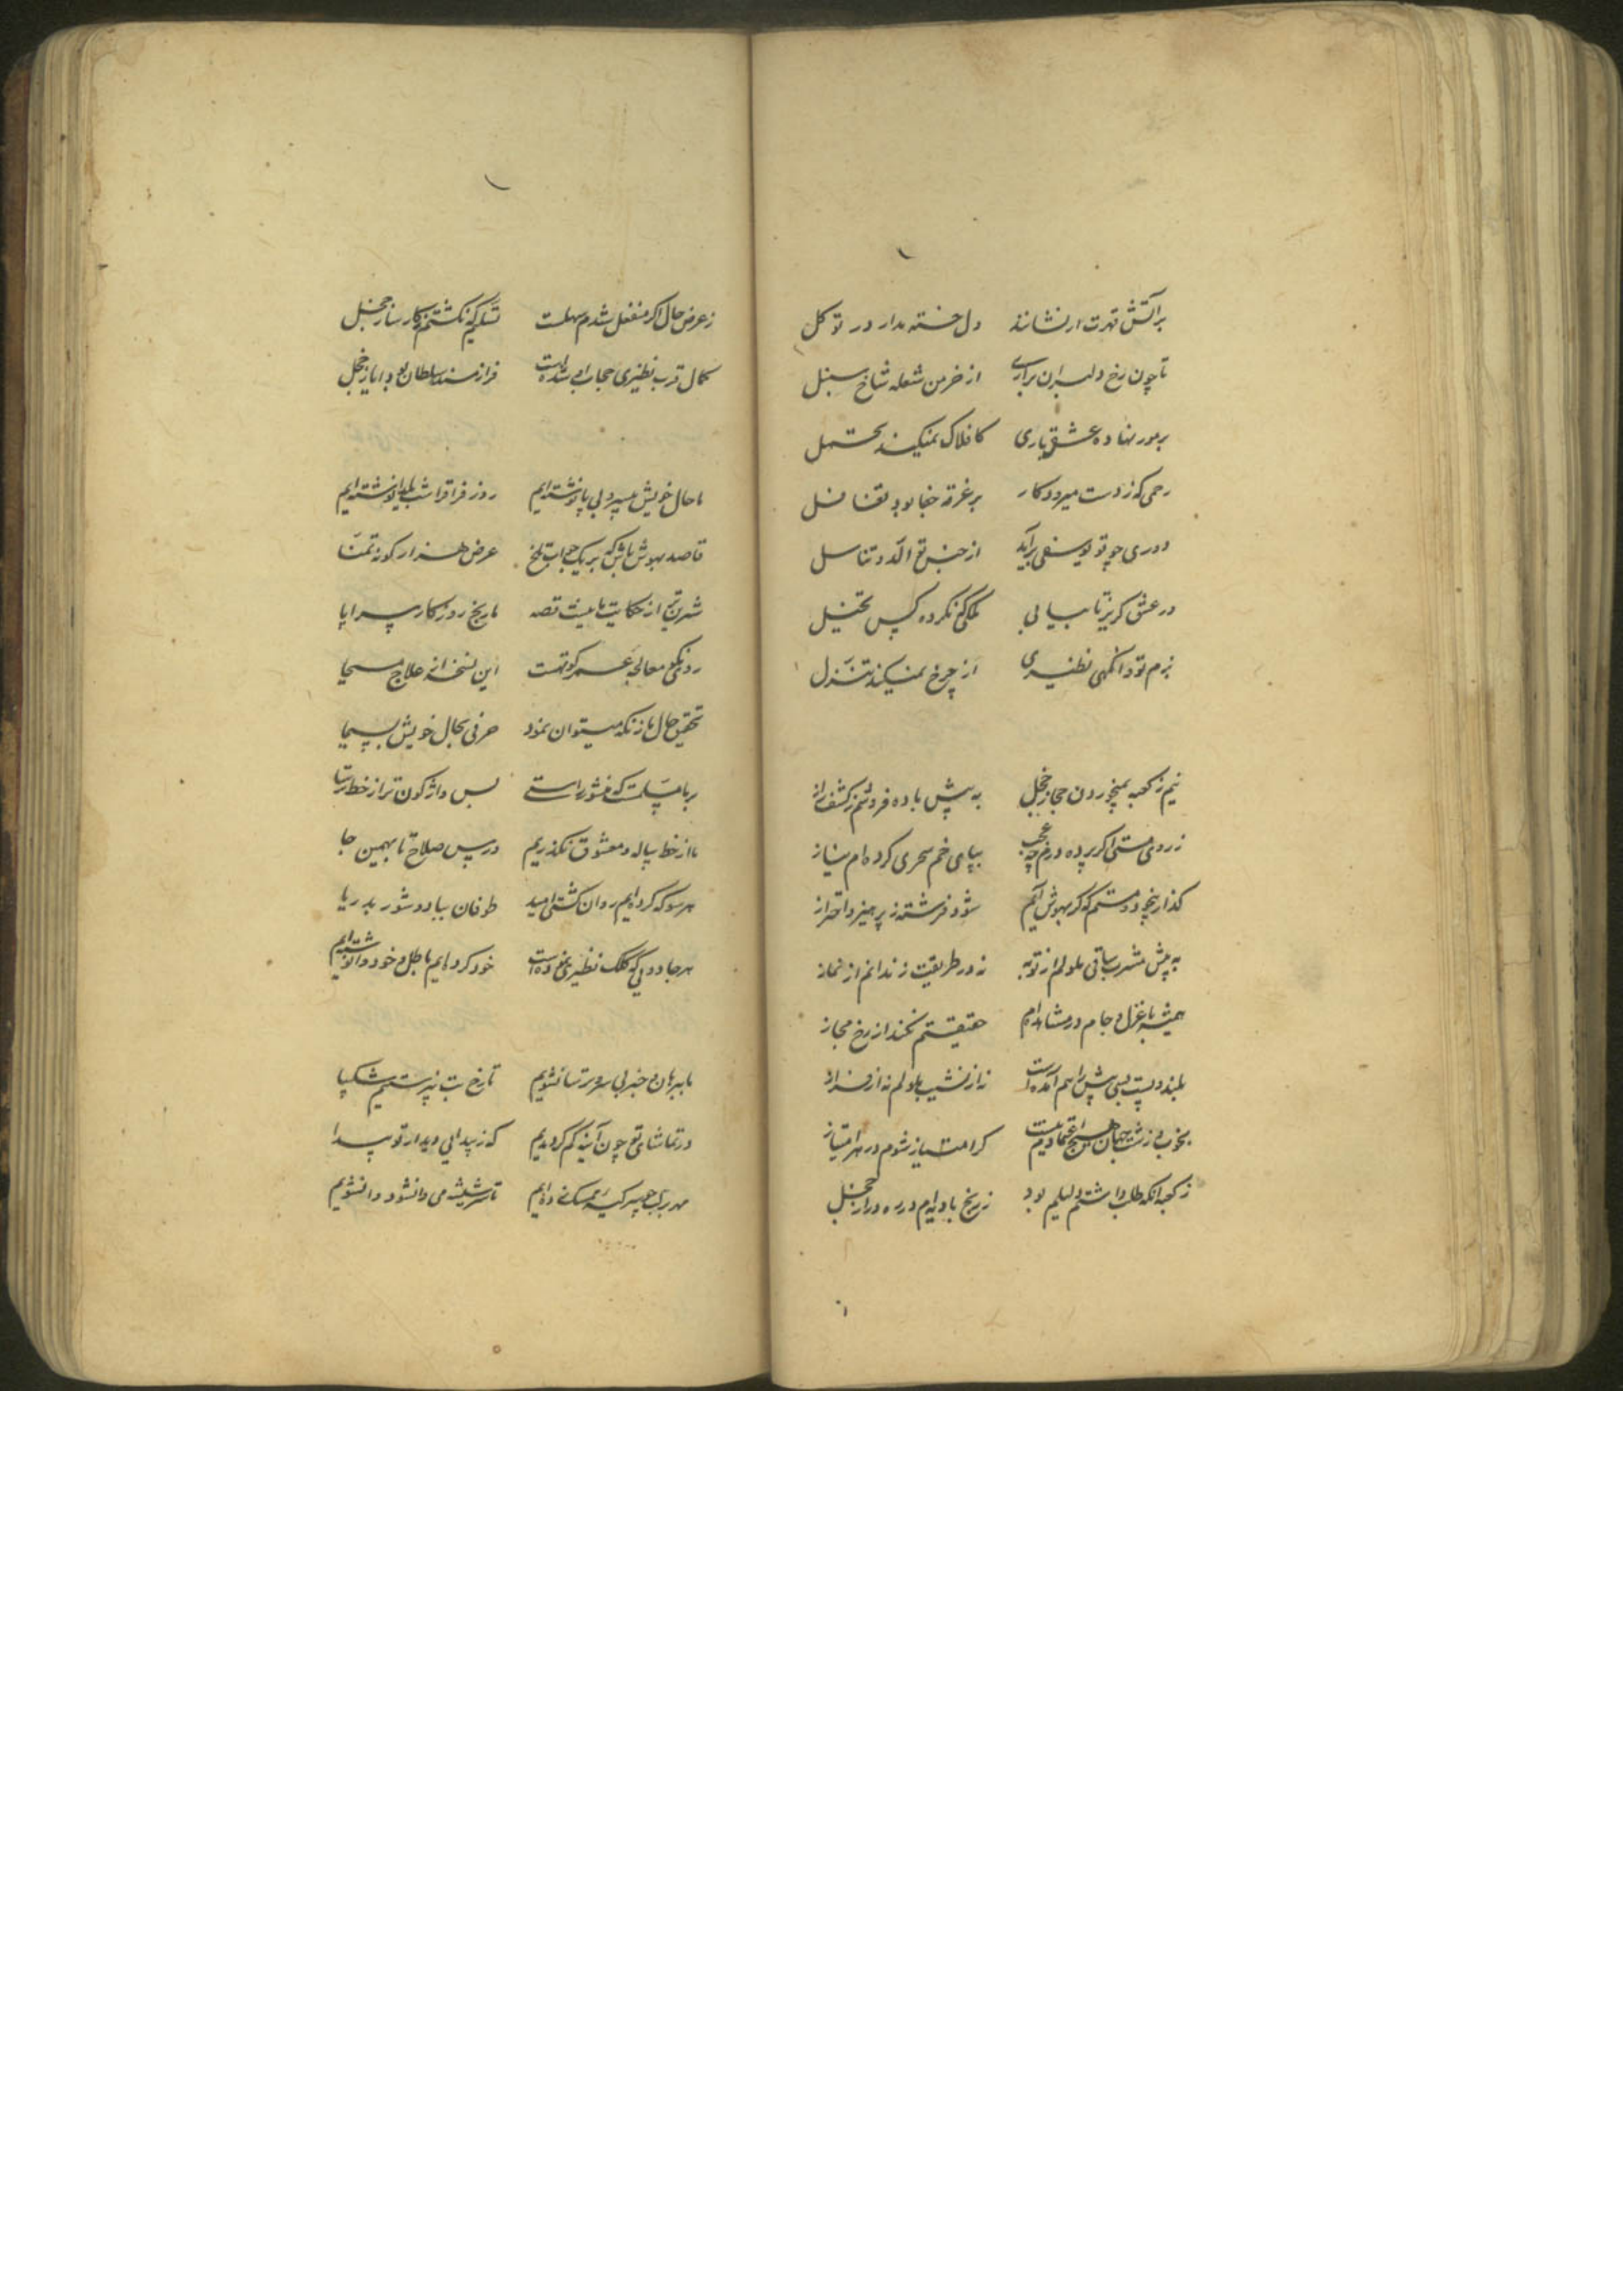 برآتش قهرت ار نشاند دل خسته مدار در توکل
تا چون رخ دلبران برآری از خرمن شعله شاخ سنبل
بر مور نهاده عشق باری کافلاک نمیکند تحمل
رحمی که ز دست میرود کار بر غرقه جفا بود تغافل
دوری چو تو یوسفی برآید از جنبش توالد و تناسل
در عشق گریز تا بیابی ملکی که نکرده کس تخیل
بزم تو و آنگهی نظیری از چرخ نمیکند تنزل
نیم ز کعبه بمیخوردن حجاز خجل به پیش باده فروشم ز کشف راز
ز روی مستی اگر پرده درم چه عجب بپای خم سحری کرده ام نیاز
گذار بیخود و مستم که گر بهوش آیم شود فرشته ز پرهیز و احتراز
به پیش مشرب ساقی ملولم از توبه نه در طریقت زندانم از نماز
همیشه با غزل و جام در مشاهده ام حقیقتم نکند از رخ مجاز
بلند و پست بسی پیش راهم آمده است نه از نشیب ملولم نه از فراز
بخوب و زشت جهان هیچ اعتمادم نیست کرامت یاز شوم در هر امتیاز
ز کعبه آنکه طلب داشتم دلیلم بود ز رنج بادیه ام در ره دراز خجل
ز عرض حال اگر منفعل شدم سهلست تسلیم که نگشتم ز کار ساز خجل
کمال قرب نظیری حجاب او شده است فراز مسند سلطان بود ایاز خجل
ما حال خویش بی سر و بی پا نوشته ایم روز فراق را شب یلدا نوشته ایم
قاصد بهوش باش که بر یک جواب تلخ عرض هزار گونه تمنا
شیرین تر از حکایت ما نیست قصه تاریخ روزگار سراپا
رو نیکویی معالجه عمر کوتهست این نسخه از علاج مسیحا
تحقیق حال ما ز نگه میتوان نمود حرفی بحال خویش بسیما
بر ما مسلمست که منشور راستی بس واژگون تر از خط ترسا
ما از خط پیاله و معشوق نگذریم درس صلاح تا بهمین جا
هر سو که کرده ایم روان کشتی امید طوفان بباد و شور بدریا
هر جادویی که کلک نظیری نموده است خود کرده ایم باطل و خود وانوشته ایم
ما ببرهان و خبر بی سر و ترسا نشویم تا رخ بت نپرستیم شکیبا
در تماشای تو چون آینه گم گردیدیم که ز پیدایی دیدار تو پیدا
مهر بر لب چو سر کیسه ممسک زده ایم تا سر شیشه می وانشود وا نشویم